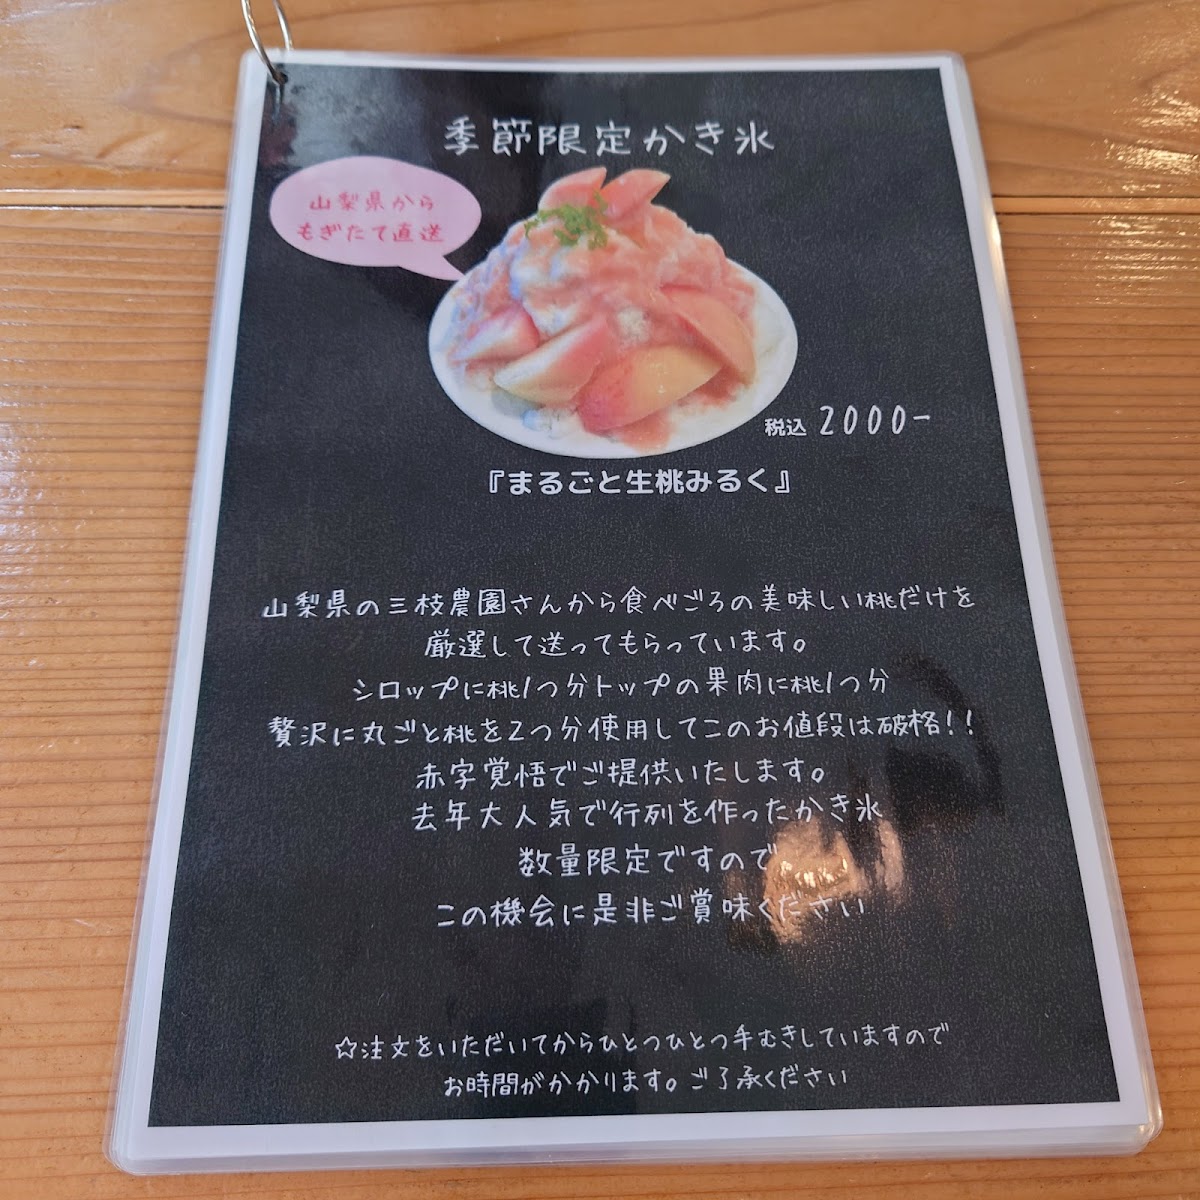 季節限定かき氷
山梨県から
もぎたて直送
税込 2000-
『まるごと生桃みるく』
山梨県の三枝農園さんから食べごろの美味しい桃だけを
厳選して送ってもらっています。
シロップに桃1つ分トップの果肉に桃1つ分
贅沢に丸ごと桃を2つ分使用してこのお値段は破格!!
赤字覚悟でご提供いたします。
去年大人気で行列を作ったかき氷
数量限定ですので
この機会に是非ご賞味ください
☆注文をいただいてからひとつひとつ手むきしていますので
お時間がかかります。ご了承ください